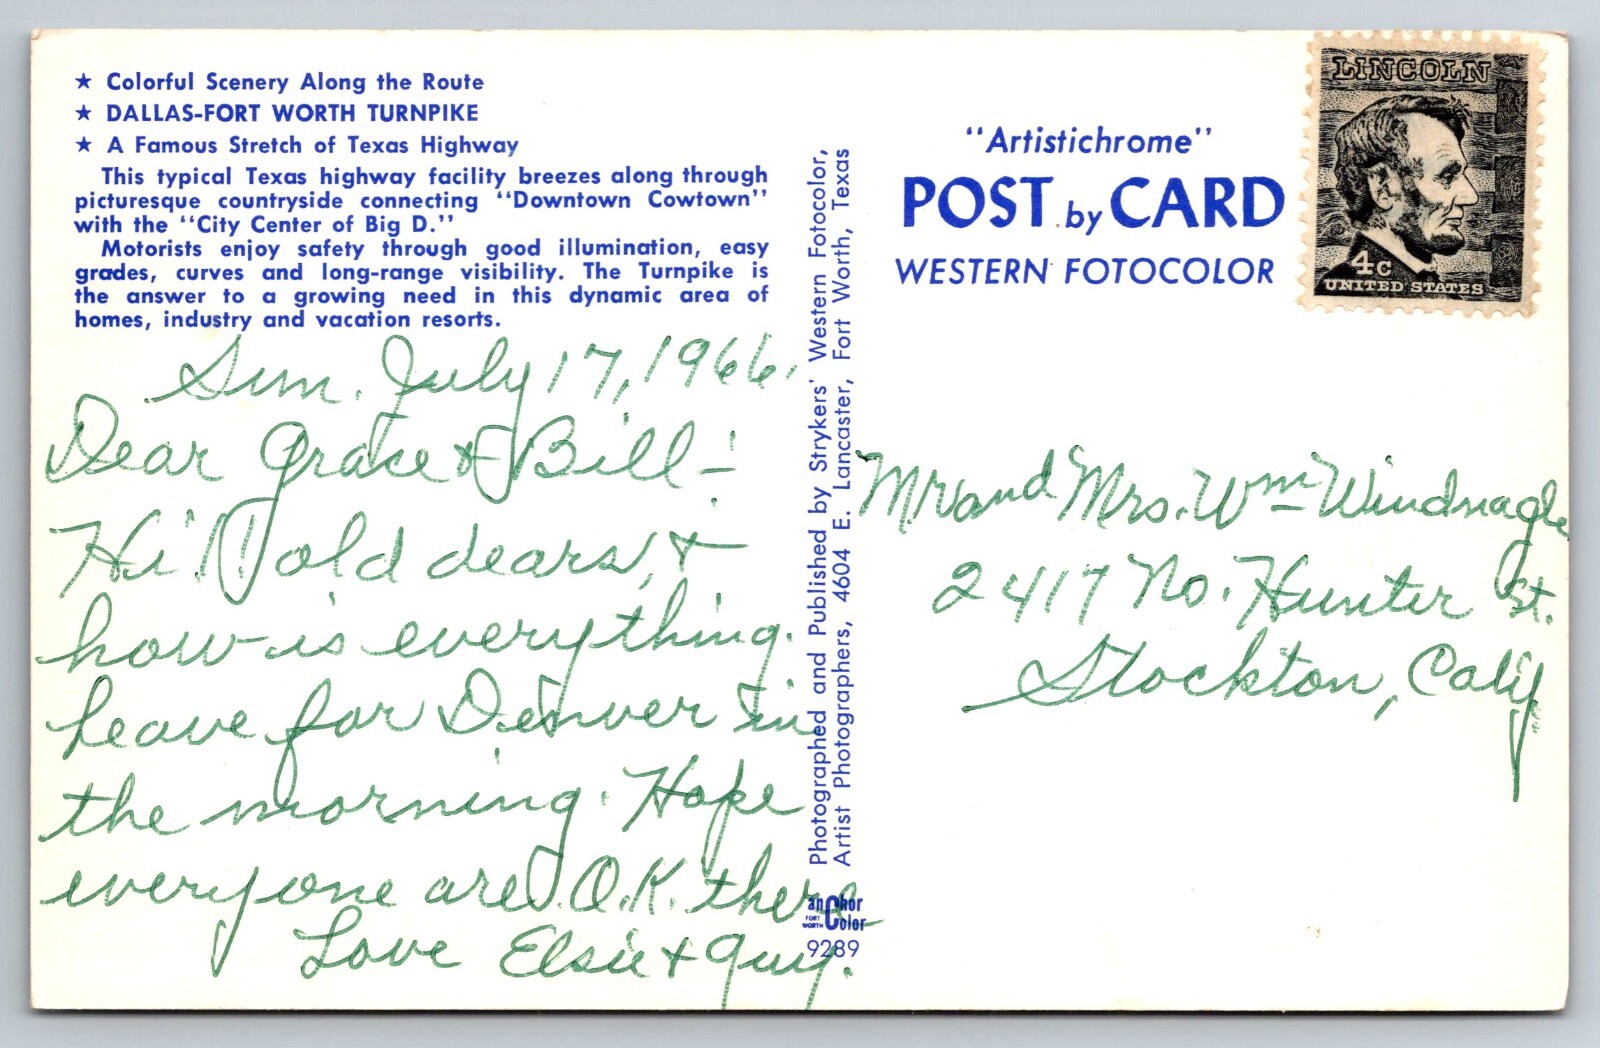 ★ Colorful Scenery Along the Route
★ DALLAS-FORT WORTH TURNPIKE
★ A Famous Stretch of Texas Highway
This typical Texas highway facility breezes along through
picturesque countryside connecting "Downtown Cowtown"
with the "City Center of Big D."
Motorists enjoy safety through good illumination, easy
grades, curves and long-range visibility. The Turnpike is
the answer to a growing need in this dynamic area of
homes, industry and vacation resorts.
Sun. July 17, 1966.
Dear Grace & Bill—
Hi! old dears, &
how is everything.
leave for Denver in
the morning. Hope
everyone are O.K. there
Love Elsie & Guy.
Photographed and Published by Strykers' Western Fotocolor,
Artist Photographers, 4604 E. Lancaster, Fort Worth, Texas
anChor
FORT WORTH Color
9289
"Artistichrome"
POST by CARD
WESTERN FOTOCOLOR
LINCOLN
4c
UNITED STATES
Mr and Mrs. Wm Windnagle
2417 No. Hunter St.
Stockton, Calif